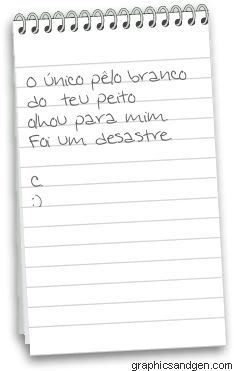 O único pêlo branco
do teu peito
olhou para mim
Foi um desastre
C
:)
graphicsandgen.com